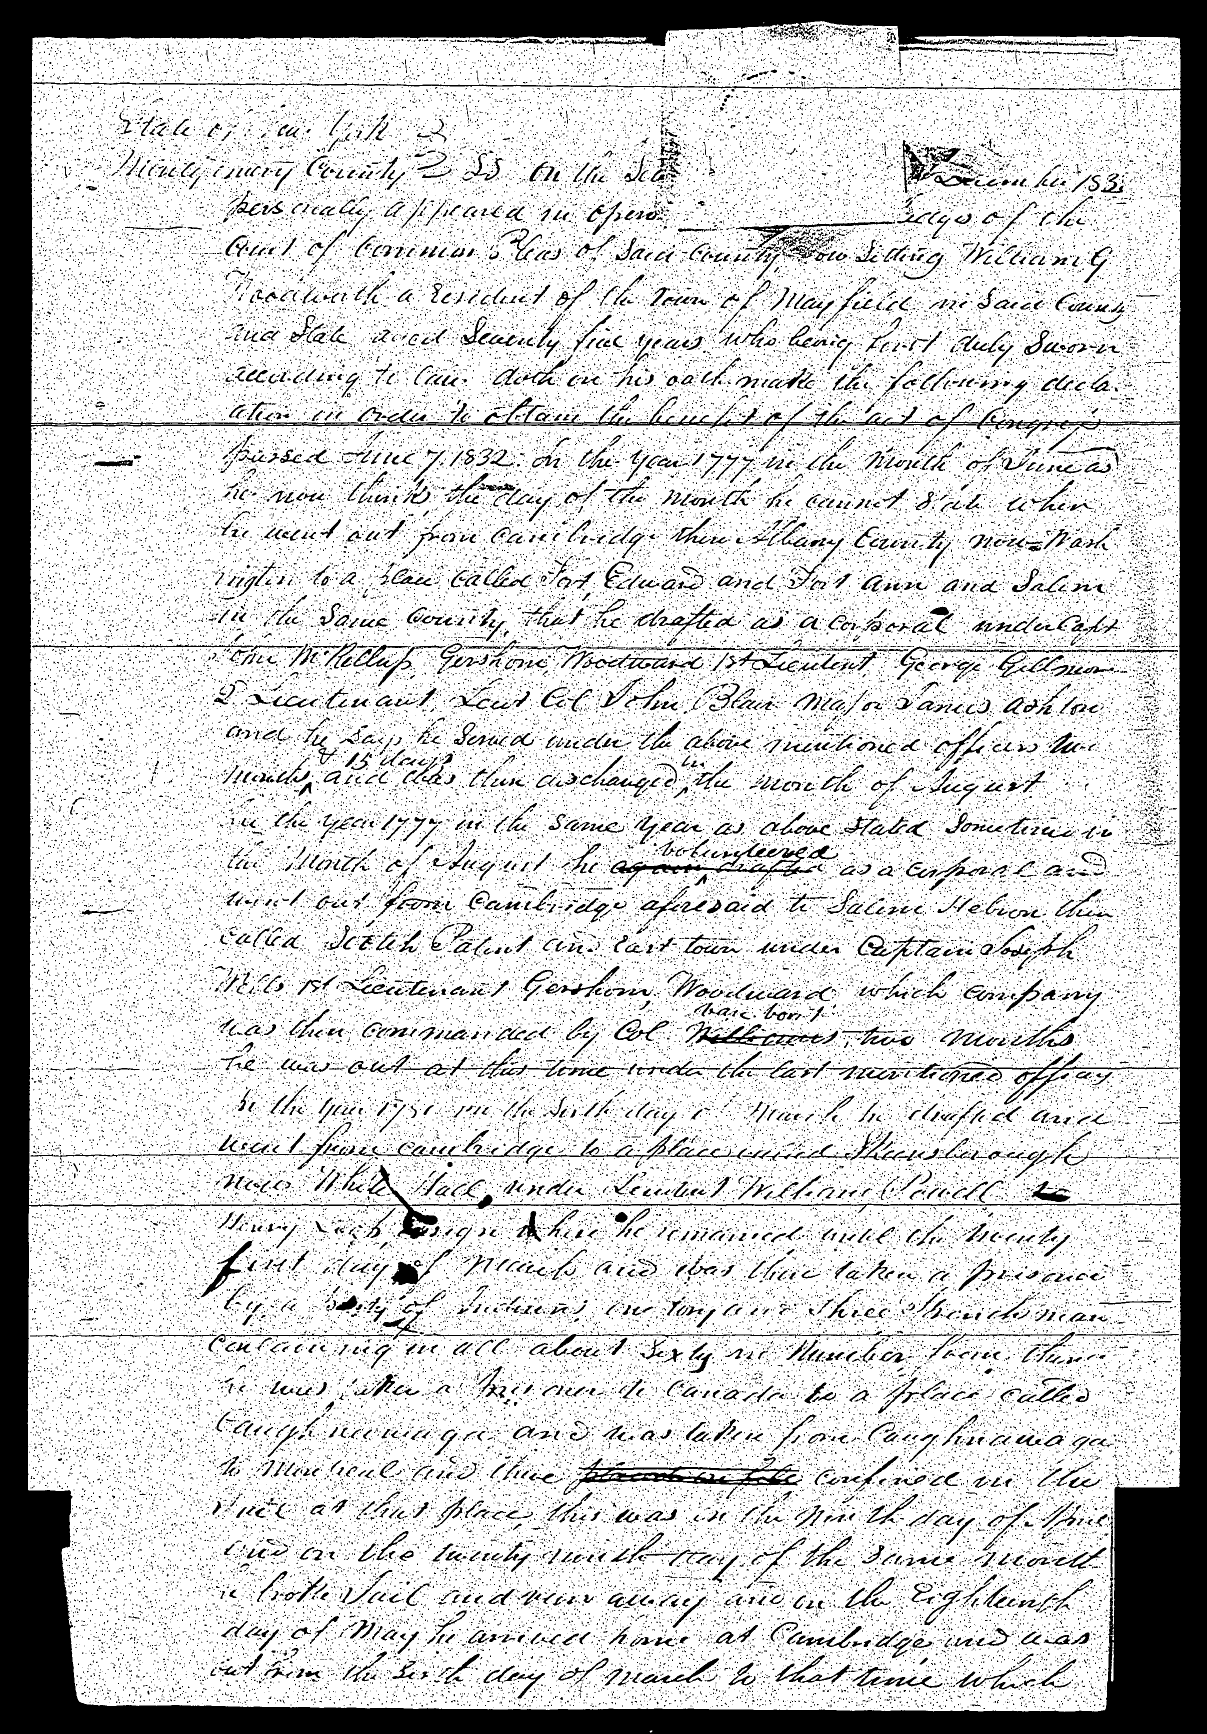 State of New York
Montgomery County SS On the December 183
personally appeared in open Judges of the
Court of Common Pleas of Said County now Sitting William G
Woodworth a Resident of the Town of Mayfield in Said County
and State aged Seventy five years who being first duly Sworn
according to Law doth on his oath make the following decla-
ation in order to obtain the benefit of the act of Congress
passed June 7. 1832. In the year 1777 in the Month of June as
he now thinks the day of the month he cannot State when
he went out from Cambridge then Albany County now Wash
ington to a place Called Fort Edward and Fort Ann and Salem
in the Same County, that he drafted as a Corporal under Capt
John McKellup, Gershom Woodward 1st Lieutent, George Gillmore
2 Lieutenant, Leut Col John Blair Major James Ashton
and he Says he Served under the above mentioned officers two
months & 15 days and was then discharged in the month of August
In the year 1777 in the Same year as above Stated Sometime in
the Month of August he again drafted volunteered as a Corporal and
went out from Cambridge aforesaid to Salem Hebron then
called Scotch Patent and East town under Captain Joseph
Wells 1st Lieutenant Gershom Woodward which company
was then commanded by Col Williams van bort two months
he was out at this time under the last mentioned officers
In the year on the Sixth day of March he drafted and
went from Cambridge to a place Skeensborough
now White Hall, under Lieutent William Powell
Henry Ensign where he remained until the twenty
first day of March and was there taken a prisoner
by a party of Indians one tory and three Frenchman
containing in all about Sixty in Number from thence
he was taken a Prisoner to Canada to a place called
Caughnawaga and was taken from Caughnawaga
to Montreal and there confined in the
Jail at that place, this was in the Ninth day of April
and on the twenty ninth day of the Same month
he broke Jail and run away and on the Eighteenth
day of May he arrived home at Cambridge and was
out from the Sixth day of March to that time which